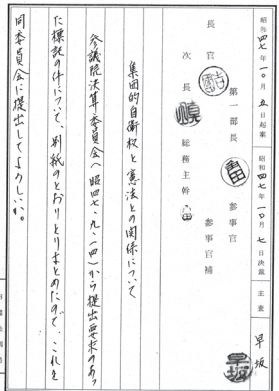 昭和四七年一〇月五日起案
昭和四七年一〇月七日決裁
主査
早坂
長官
第一部長
参事官
次長
総務主幹
参事官補
早坂
集団的自衛権と憲法との関係について
参議院決算委員会(昭四七、九、一四)から提出要求のあっ
た標記の件について、別紙のとおりとりまとめたので、これを
同委員会に提出してよろしいか。